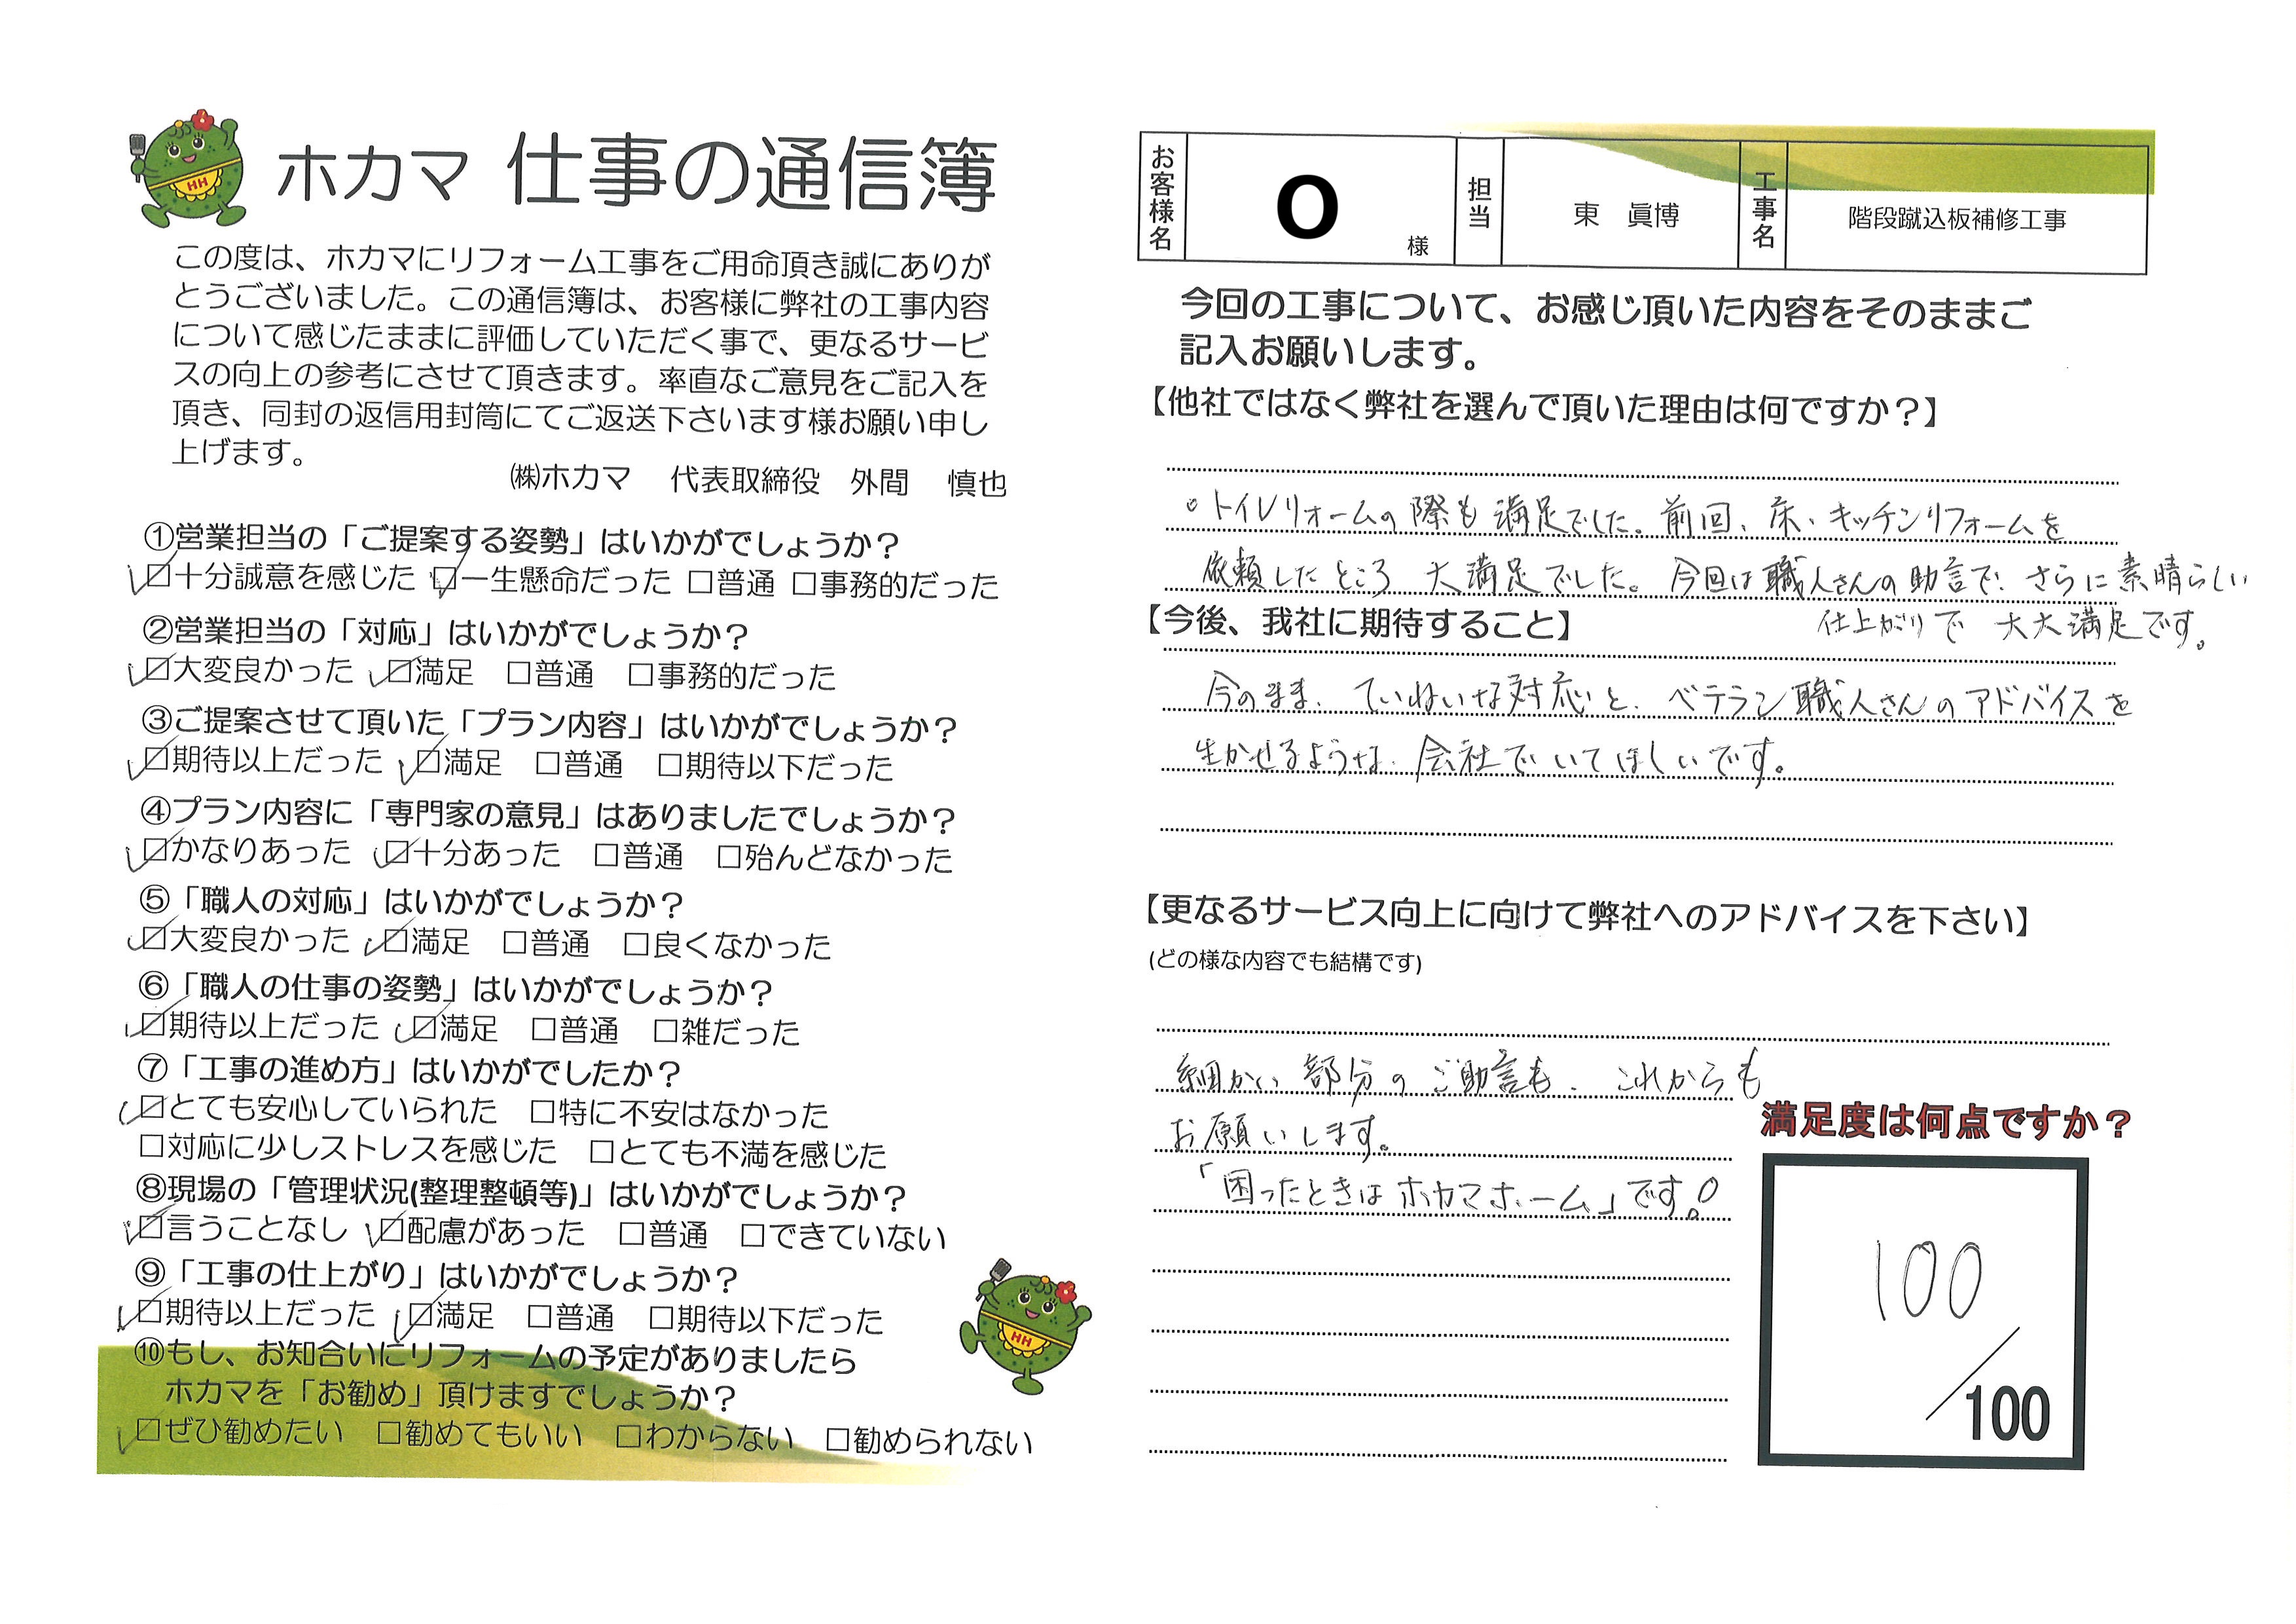 ホカマ 仕事の通信簿
この度は、ホカマにリフォーム工事をご用命頂き誠にありが
とうございました。この通信簿は、お客様に弊社の工事内容
について感じたままに評価していただく事で、更なるサービ
スの向上の参考にさせて頂きます。率直なご意見をご記入を
頂き、同封の返信用封筒にてご返送下さいます様お願い申し
上げます。
㈱ホカマ 代表取締役 外間 慎也
①営業担当の「ご提案する姿勢」はいかがでしょうか？
☑十分誠意を感じた ☑一生懸命だった □普通 □事務的だった
②営業担当の「対応」はいかがでしょうか？
☑大変良かった ☑満足 □普通 □事務的だった
③ご提案させて頂いた「プラン内容」はいかがでしょうか？
☑期待以上だった ☑満足 □普通 □期待以下だった
④プラン内容に「専門家の意見」はありましたでしょうか？
☑かなりあった ☑十分あった □普通 □殆んどなかった
⑤「職人の対応」はいかがでしょうか？
☑大変良かった ☑満足 □普通 □良くなかった
⑥「職人の仕事の姿勢」はいかがでしょうか？
☑期待以上だった ☑満足 □普通 □雑だった
⑦「工事の進め方」はいかがでしたか？
☑とても安心していられた □特に不安はなかった
□対応に少しストレスを感じた □とても不満を感じた
⑧現場の「管理状況(整理整頓等)」はいかがでしょうか？
☑言うことなし ☑配慮があった □普通 □できていない
⑨「工事の仕上がり」はいかがでしょうか？
☑期待以上だった ☑満足 □普通 □期待以下だった
⑩もし、お知合いにリフォームの予定がありましたら
ホカマを「お勧め」頂けますでしょうか？
☑ぜひ勧めたい □勧めてもいい □わからない □勧められない
HH
HH
お客様名 O 様 担当 東 眞博 工事名 階段蹴込板補修工事
今回の工事について、お感じ頂いた内容をそのままご
記入お願いします。
【他社ではなく弊社を選んで頂いた理由は何ですか？】
○トイレリォームの際も満足でした。前回、床、キッチンリフォームを
依頼したところ 大満足でした。今回は職人さんの助言で、さらに素晴らしい
仕上がりで 大大満足です。
【今後、我社に期待すること】
今のまま、ていねいな対応と、ベテラン職人さんのアドバイスを
生かせるような、会社でいてほしいです。
【更なるサービス向上に向けて弊社へのアドバイスを下さい】
(どの様な内容でも結構です)
細かい部分のご助言も、これからも
お願いします。
「困ったときはホカマホーム」です！
満足度は何点ですか？
100
/100